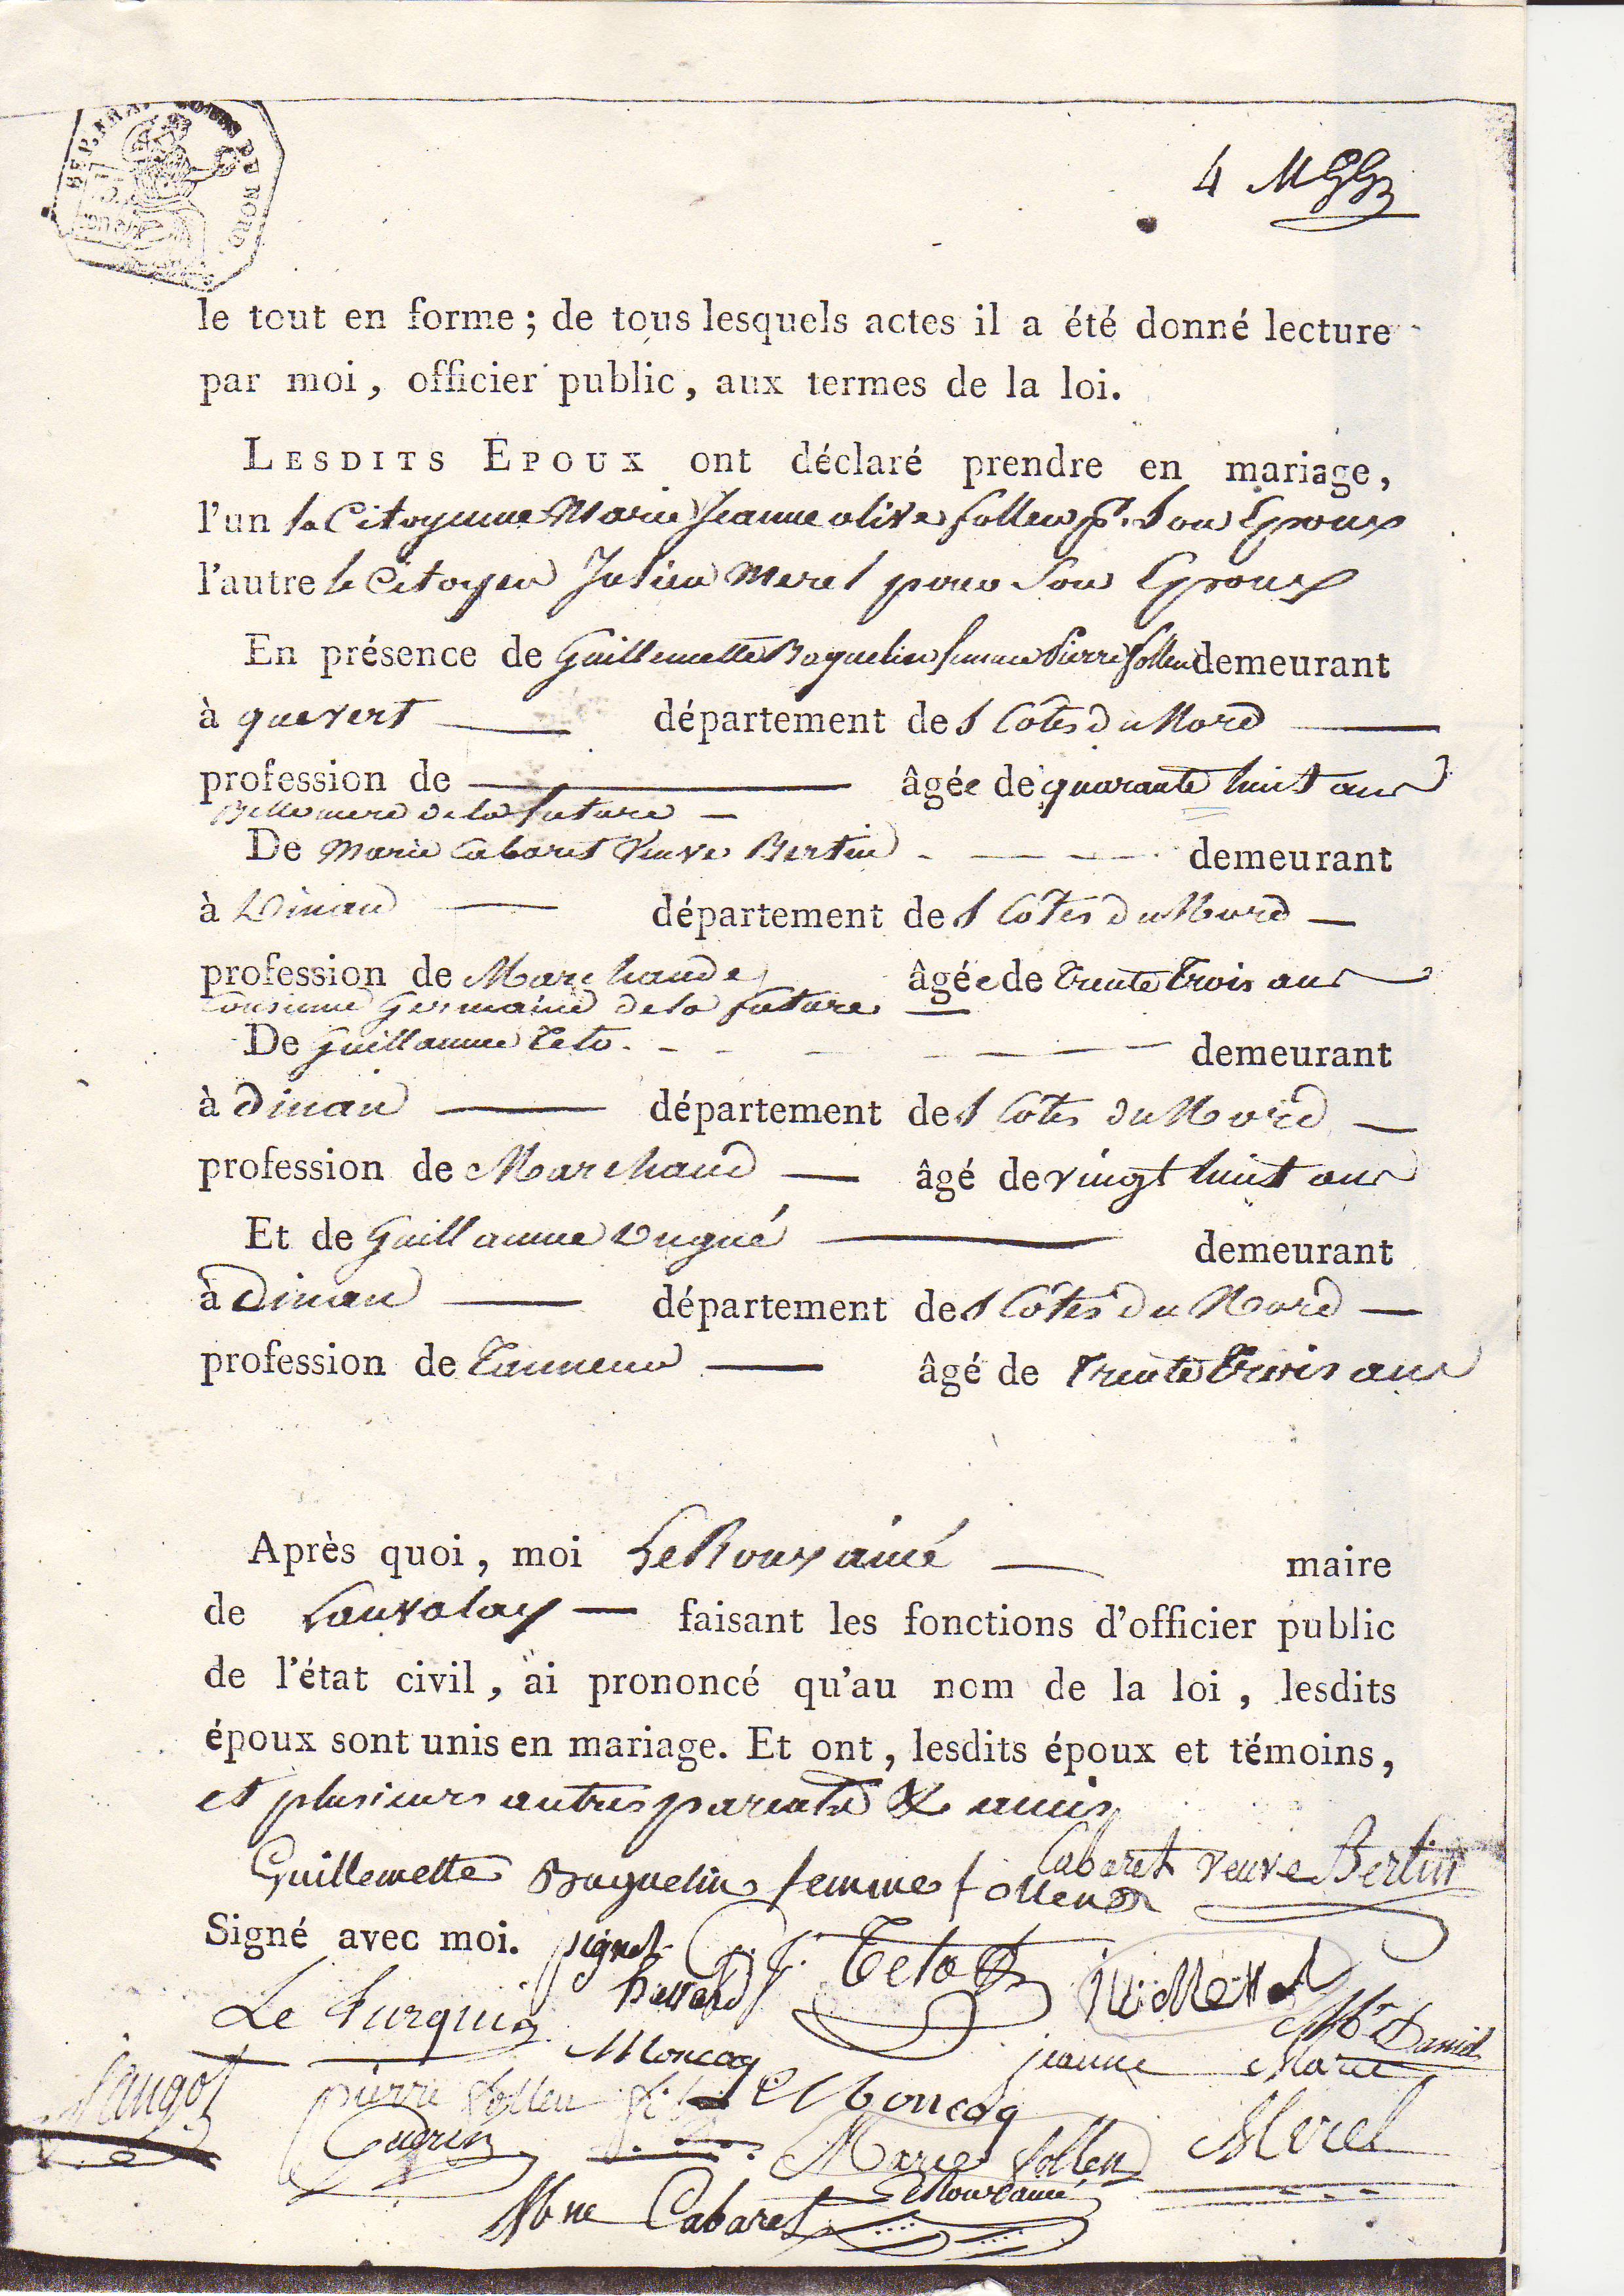 4
le tout en forme; de tous lesquels actes il a été donné lecture
par moi, officier public, aux termes de la loi.
LESDITS EPOUX ont déclaré prendre en mariage,
l'un la Citoyenne Marie Jeanne olive follen pr. Son Epoux
l'autre le Citoyen Julien Merel pour Son Epoux
En présence de Guillemette Baguelin femme Pierre follen demeurant
à quevert département des Côtes du Nord
profession de âgée de quarante huit ans
Bellemere de la future
De Marie Cabaret Veuve Bertin demeurant
à Dinan département des Côtes du Nord
profession de Marchande âgée de trente trois ans
Cousinne Germaine de la future
De Guillaume Teto demeurant
à dinan département des Côtes du Nord
profession de Marchand âgé de vingt huit ans
Et de Guillaume Dugué demeurant
à dinan département des Côtes du Nord
profession de Tanneur âgé de trente trois ans
Après quoi, moi LeRoux ainé maire
de Lanvalay faisant les fonctions d'officier public
de l'état civil, ai prononcé qu'au nom de la loi, lesdits
époux sont unis en mariage. Et ont, lesdits époux et témoins,
et plusieurs autres parents & amis
Cabaret veuve Bertin
Guillemette Baguelin femme follen
Signé avec moi. pignel G. J. Teto
Le Turquis
Moncoq jeanne Marie
pierre follen fils Moncoq
Guerin Marie follen Merel
LeRoux ainé
Cabaret